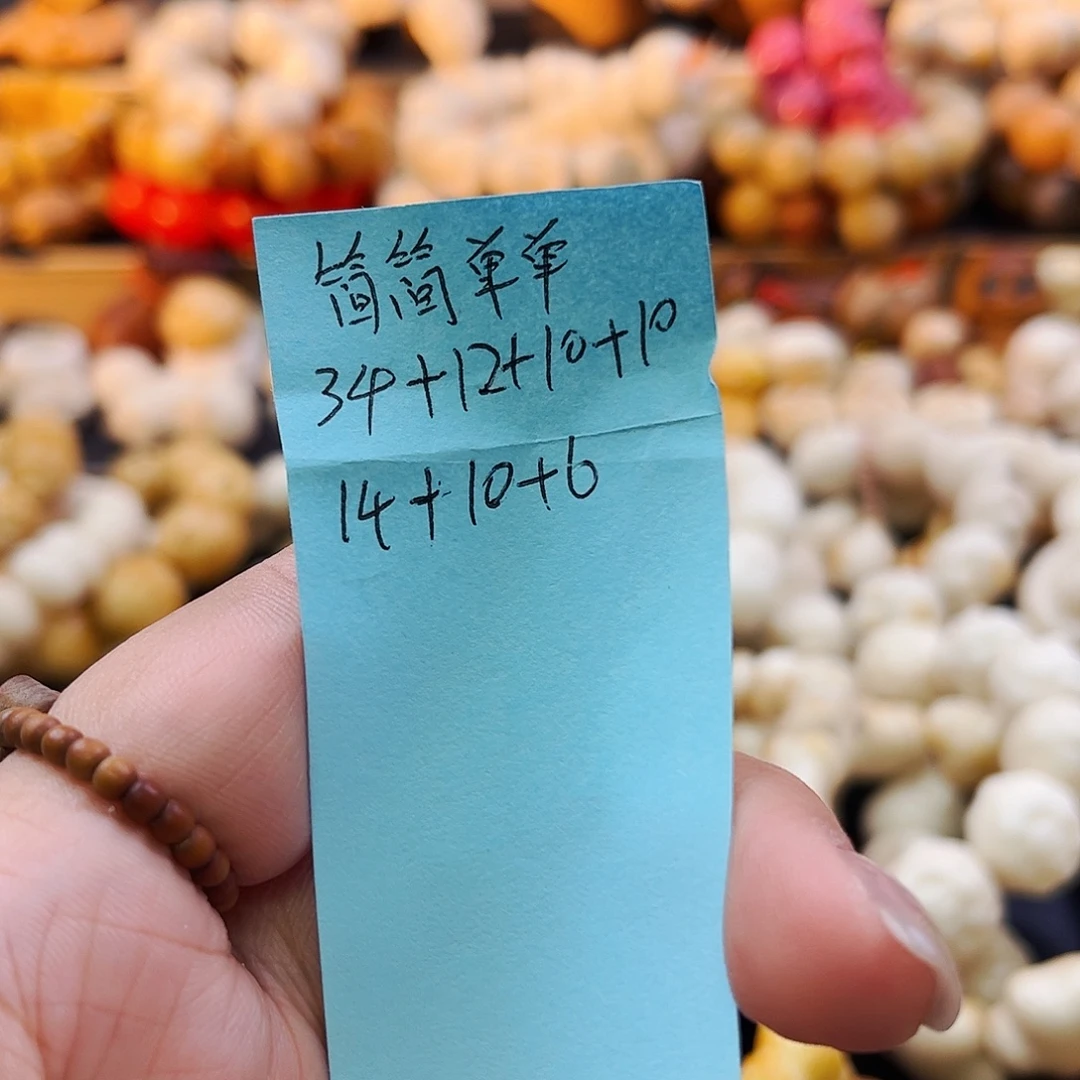 简简单单
34+12+10+10
14+10+6